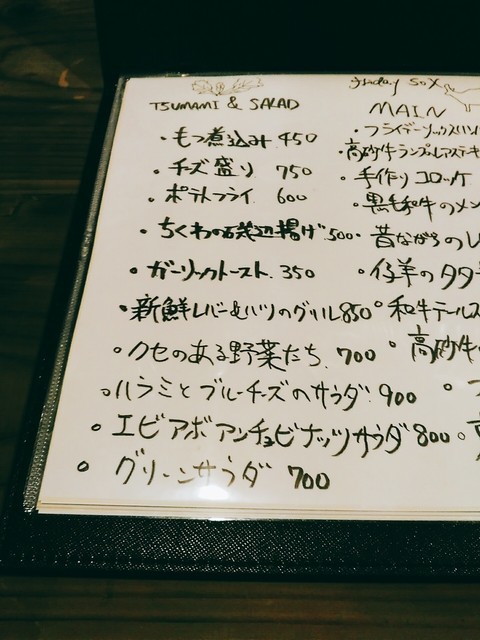 TSUMAMI & SALAD
・もつ煮込み 450
・チーズ盛り 750
・ポテトフライ 600
・ちくわの磯辺揚げ 500
・ガーリックトースト 350
・新鮮レバー&ハツのグリル 850
・クセのある野菜たち 700
・ハラミとブルーチーズのサラダ 900
・エビアボアンチョビナッツサラダ 800
・グリーンサラダ 700
friday sox
MAIN
・フライデーソックスハン
・高砂牛ランプ
・手作りコロッケ
・黒毛和牛のメン
・昔ながらの
・仔羊のタタ
・和牛テールス
・高砂牛